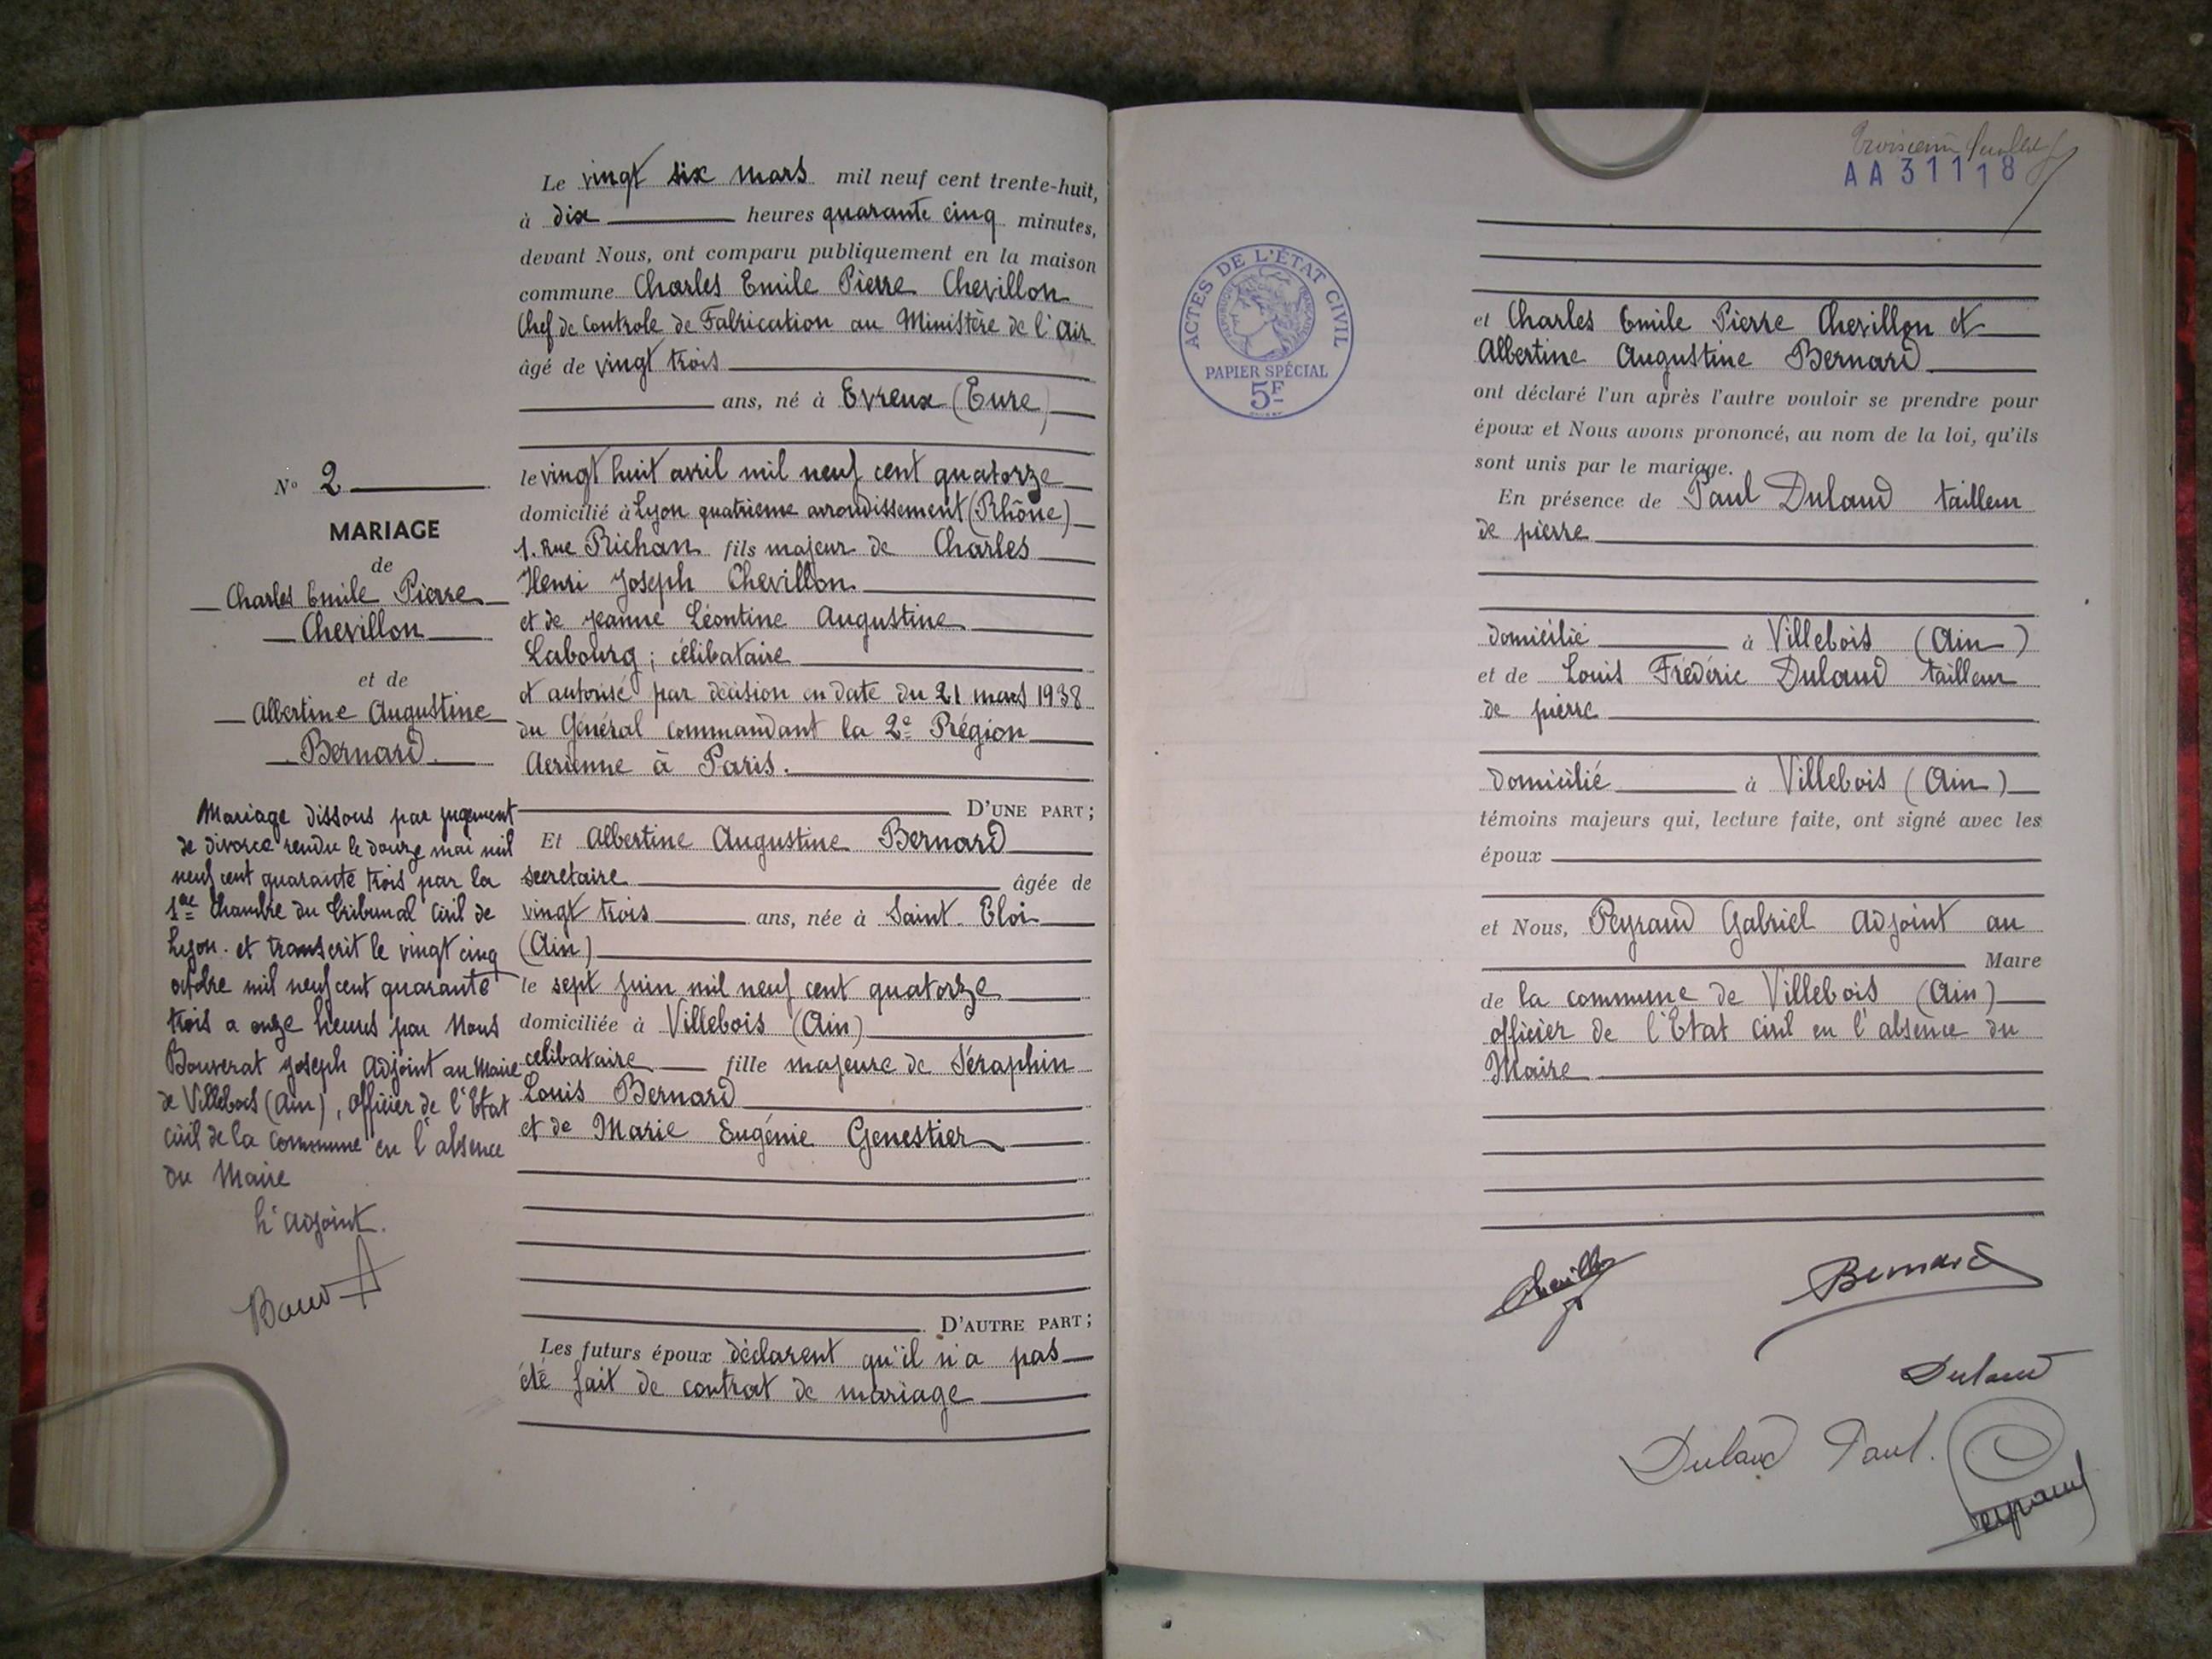 N° 2
MARIAGE
de
Charles Emile Pierre
Chevillon
et de
Albertine Augustine
Bernard
Mariage dissous par jugement
de divorce rendu le douze mai mil
neuf cent quarante trois par la
1ère Chambre du Tribunal Civil de
Lyon. et transcrit le vingt cinq
octobre mil neuf cent quarante
trois a onze heures par Nous
Bouverat Joseph Adjoint au Maire
de Villebois (Ain), officier de l'Etat
Civil de la Commune en l'absence
du Maire
L'adjoint.
Le vingt six mars mil neuf cent trente-huit,
à dix heures quarante cinq minutes,
devant Nous, ont comparu publiquement en la maison
commune Charles Emile Pierre Chevillon
Chef de Controle de Fabrication au Ministère de l'Air
âgé de vingt trois
ans, né à Evreux (Eure)
le vingt huit avril mil neuf cent quatorze
domicilié à Lyon quatrieme arrondissement (Rhône)
1. Rue Richan fils majeur de Charles
Henri Joseph Chevillon
et de Jeanne Léontine Augustine
Labourg ; célibataire
et autorisé par décision en date du 21 mars 1938
du Général Commandant la 2e Région
Aerienne à Paris.
D'UNE PART ;
Et Albertine Augustine Bernard
secretaire âgée de
vingt trois ans, née à Saint. Eloi
(Ain)
le sept juin mil neuf cent quatorze
domiciliée à Villebois (Ain)
celibataire fille majeure de Séraphin
Louis Bernard
et de Marie Eugénie Genestier
D'AUTRE PART ;
Les futurs époux déclarent qu'il n'a pas
été fait de contrat de mariage
Troisième
AA31118
ACTES DE L'ÉTAT CIVIL
RÉPUBLIQUE FRANÇAISE
PAPIER SPÉCIAL
5F
et Charles Emile Pierre Chevillon et
Albertine Augustine Bernard
ont déclaré l'un après l'autre vouloir se prendre pour
époux et Nous avons prononcé, au nom de la loi, qu'ils
sont unis par le mariage.
En présence de Paul Dulaud tailleur
de pierre
domicilié à Villebois (Ain)
et de Louis Frédéric Dulaud tailleur
de pierre
domicilié à Villebois (Ain)
témoins majeurs qui, lecture faite, ont signé avec les
époux
et Nous, Peyraud Gabriel Adjoint au
Maire
de la commune de Villebois (Ain)
officier de l'Etat Civil en l'absence du
Maire
Chevillon
Bernard
Dulaud
Dulaud Paul.
Peyraud